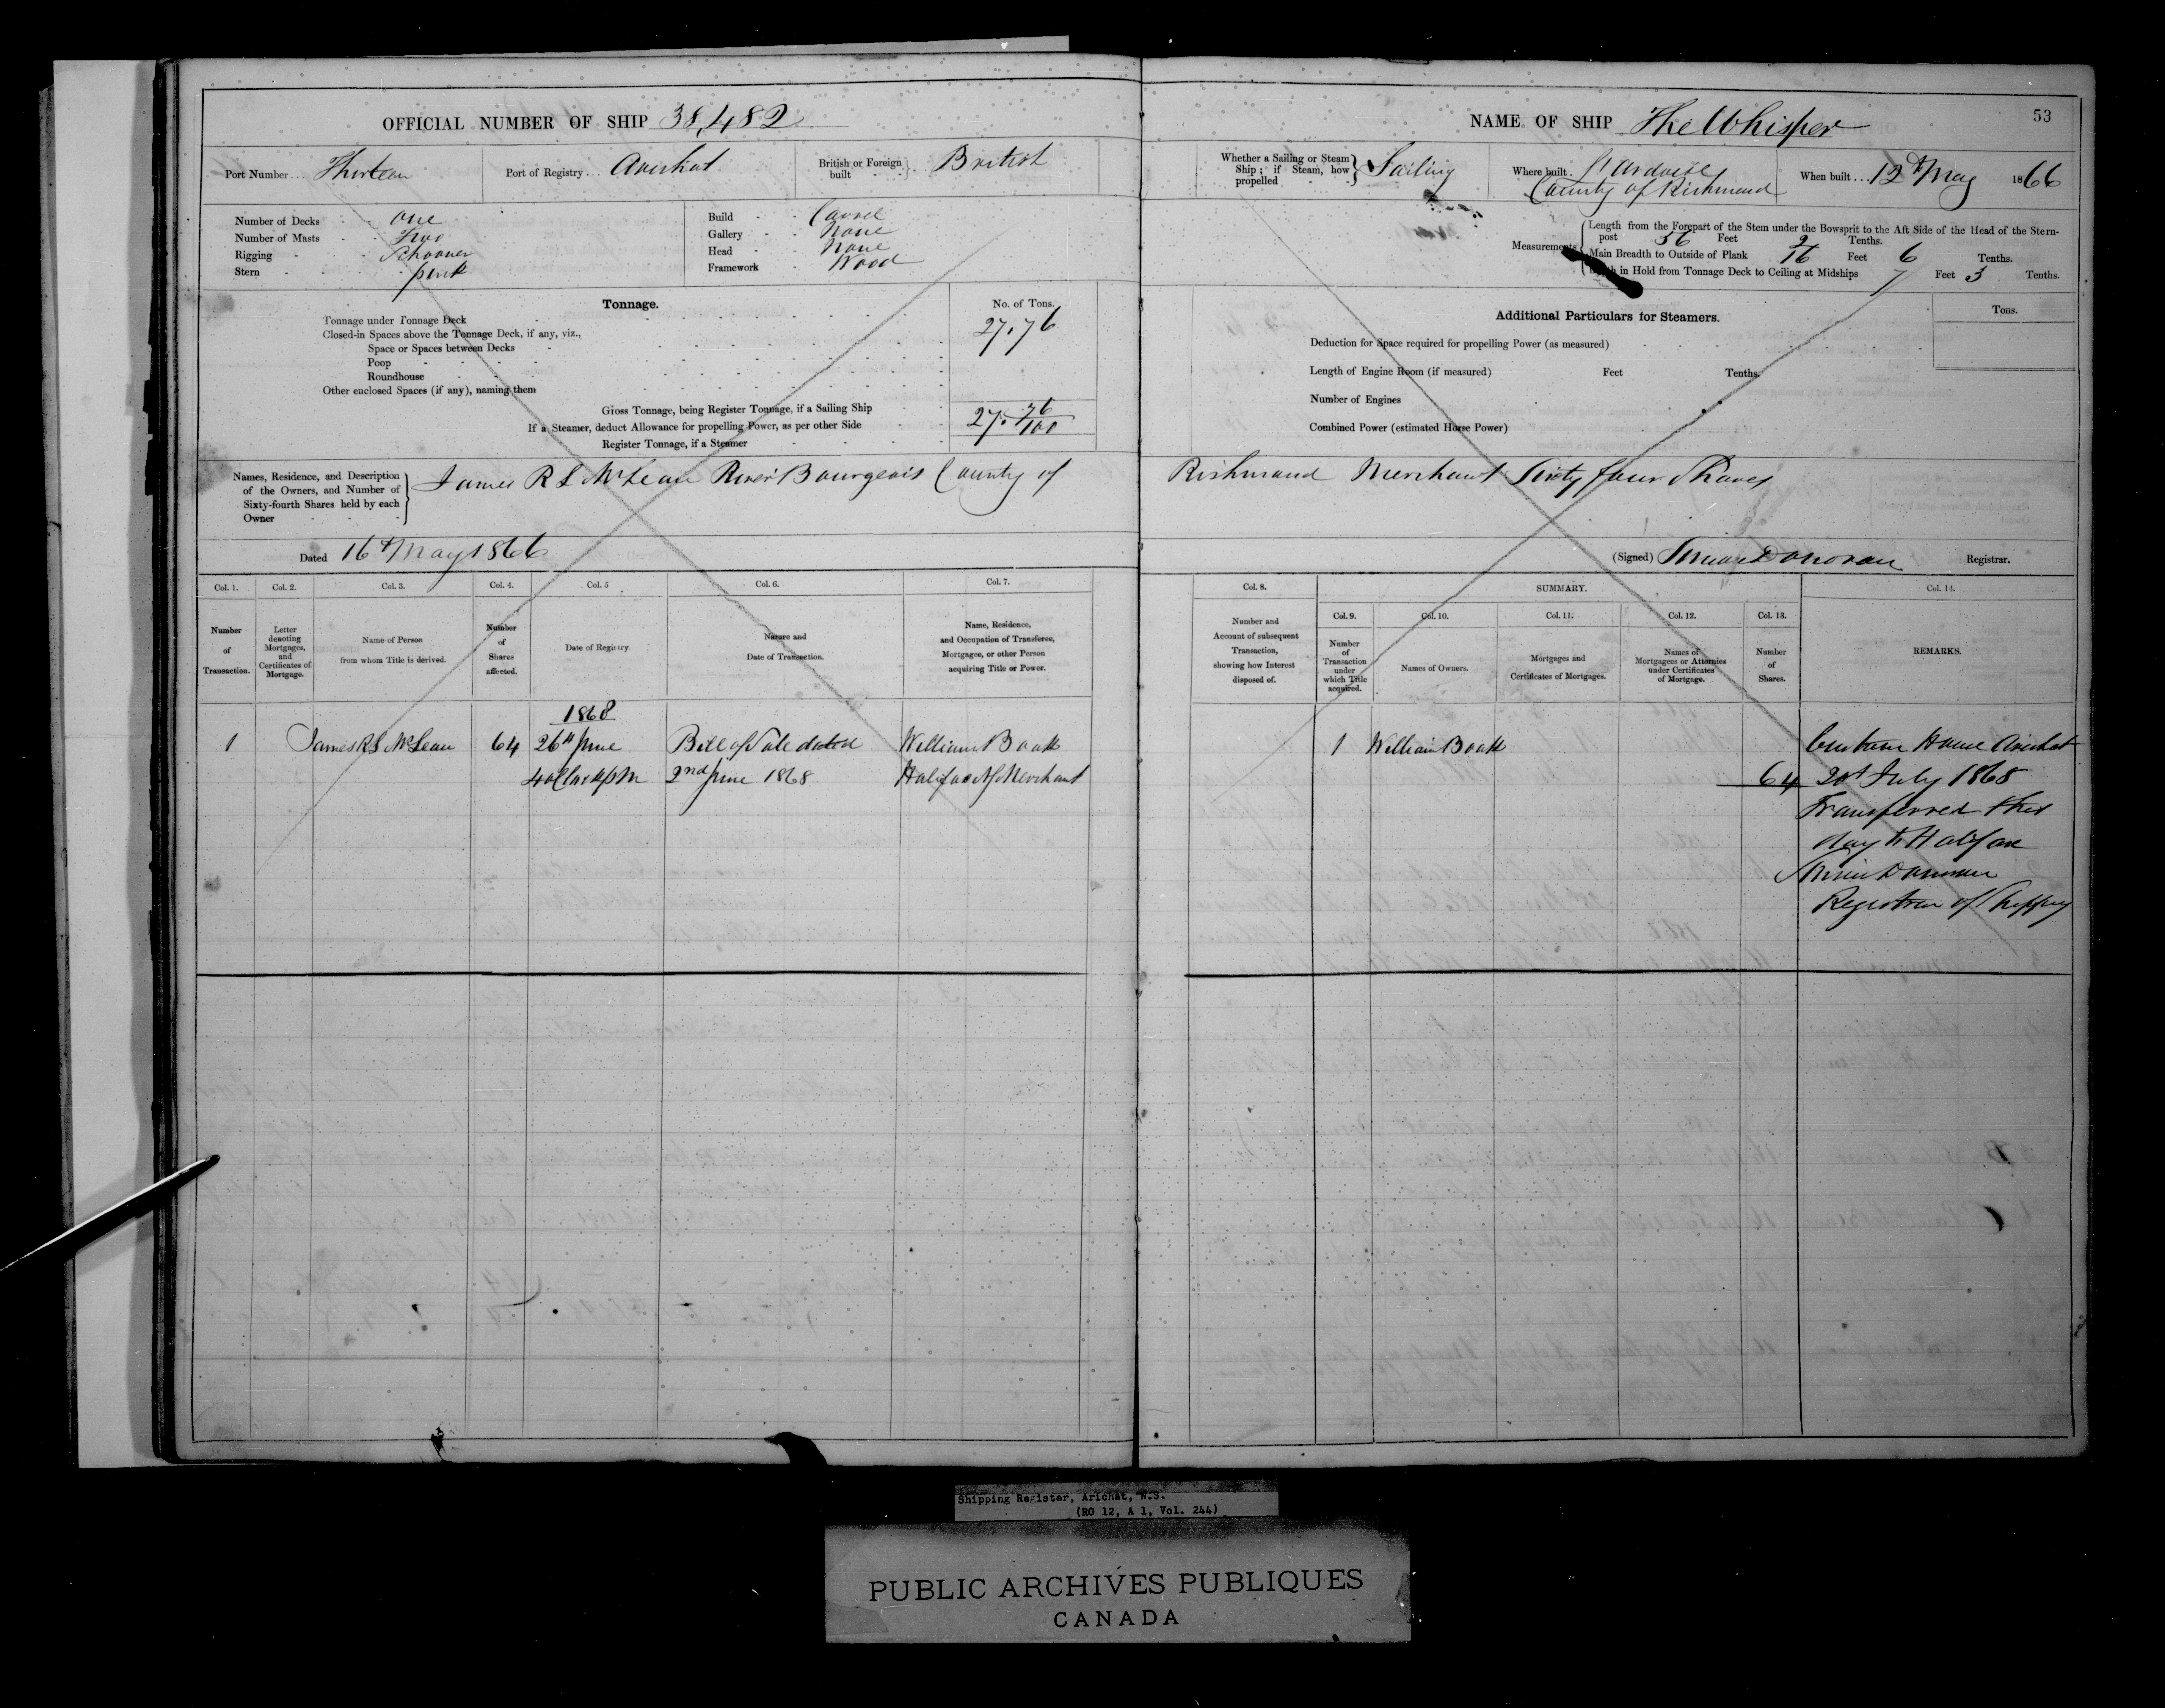 OFFICIAL NUMBER OF SHIP 38,482
Port Number Thirteen Port of Registry Arichat British or Foreign built British
Number of Decks one
Number of Masts Two
Rigging Schooner
Stern pink
Build Carvel
Gallery None
Head None
Framework Wood
Tonnage. No. of Tons.
Tonnage under Tonnage Deck 27.76
Closed-in Spaces above the Tonnage Deck, if any, viz.,
Space or Spaces between Decks
Poop
Roundhouse
Other enclosed Spaces (if any), naming them
Gross Tonnage, being Register Tonnage, if a Sailing Ship 27. 76/100
If a Steamer, deduct Allowance for propelling Power, as per other Side
Register Tonnage, if a Steamer
Names, Residence, and Description of the Owners, and Number of Sixty-fourth Shares held by each Owner
James R S McLean River Bourgeois County of
Dated 16th May 1866
Col. 1. Col. 2. Col. 3. Col. 4. Col. 5 Col. 6. Col. 7.
Number of Transaction.
Letter denoting Mortgages, and Certificates of Mortgage.
Name of Person from whom Title is derived.
Number of Shares affected.
Date of Registry.
Nature and Date of Transaction.
Name, Residence, and Occupation of Transferee, Mortgagee, or other Person acquiring Title or Power.
1868
1 James RS McLean 64 26th June Bill of Sale dated William Boak
4 oClock PM 2nd June 1868 Halifax NS Merchant
53
NAME OF SHIP The Whisper
Whether a Sailing or Steam Ship; if Steam, how propelled Sailing
Where built County of Richmond
When built 12th May 1866
Measurements
Length from the Forepart of the Stem under the Bowsprit to the Aft Side of the Head of the Stern-
post 56 Feet 2 Tenths.
Main Breadth to Outside of Plank 16 Feet 6 Tenths.
in Hold from Tonnage Deck to Ceiling at Midships 7 Feet 3 Tenths.
Additional Particulars for Steamers. Tons.
Deduction for Space required for propelling Power (as measured)
Length of Engine Room (if measured) Feet Tenths.
Number of Engines
Combined Power (estimated Horse Power)
Richmond Merchant Sixty four Shares
(Signed) Donovan Registrar.
Col. 8. SUMMARY. Col. 14.
Col. 9. Col. 10. Col. 11. Col. 12. Col. 13.
Number and Account of subsequent Transaction, showing how Interest disposed of.
Number of Transaction under which Title acquired.
Names of Owners.
Mortgages and Certificates of Mortgages.
Names of Mortgagees or Attornies under Certificates of Mortgage.
Number of Shares.
REMARKS.
1 William Boak Custom House Arichat
64 July 1868
Transferred this
day to Halifax
Donovan
Registrar of Shipping
Shipping Register, Arichat, N.S.
(RG 12, A 1, Vol. 244)
PUBLIC ARCHIVES PUBLIQUES
CANADA